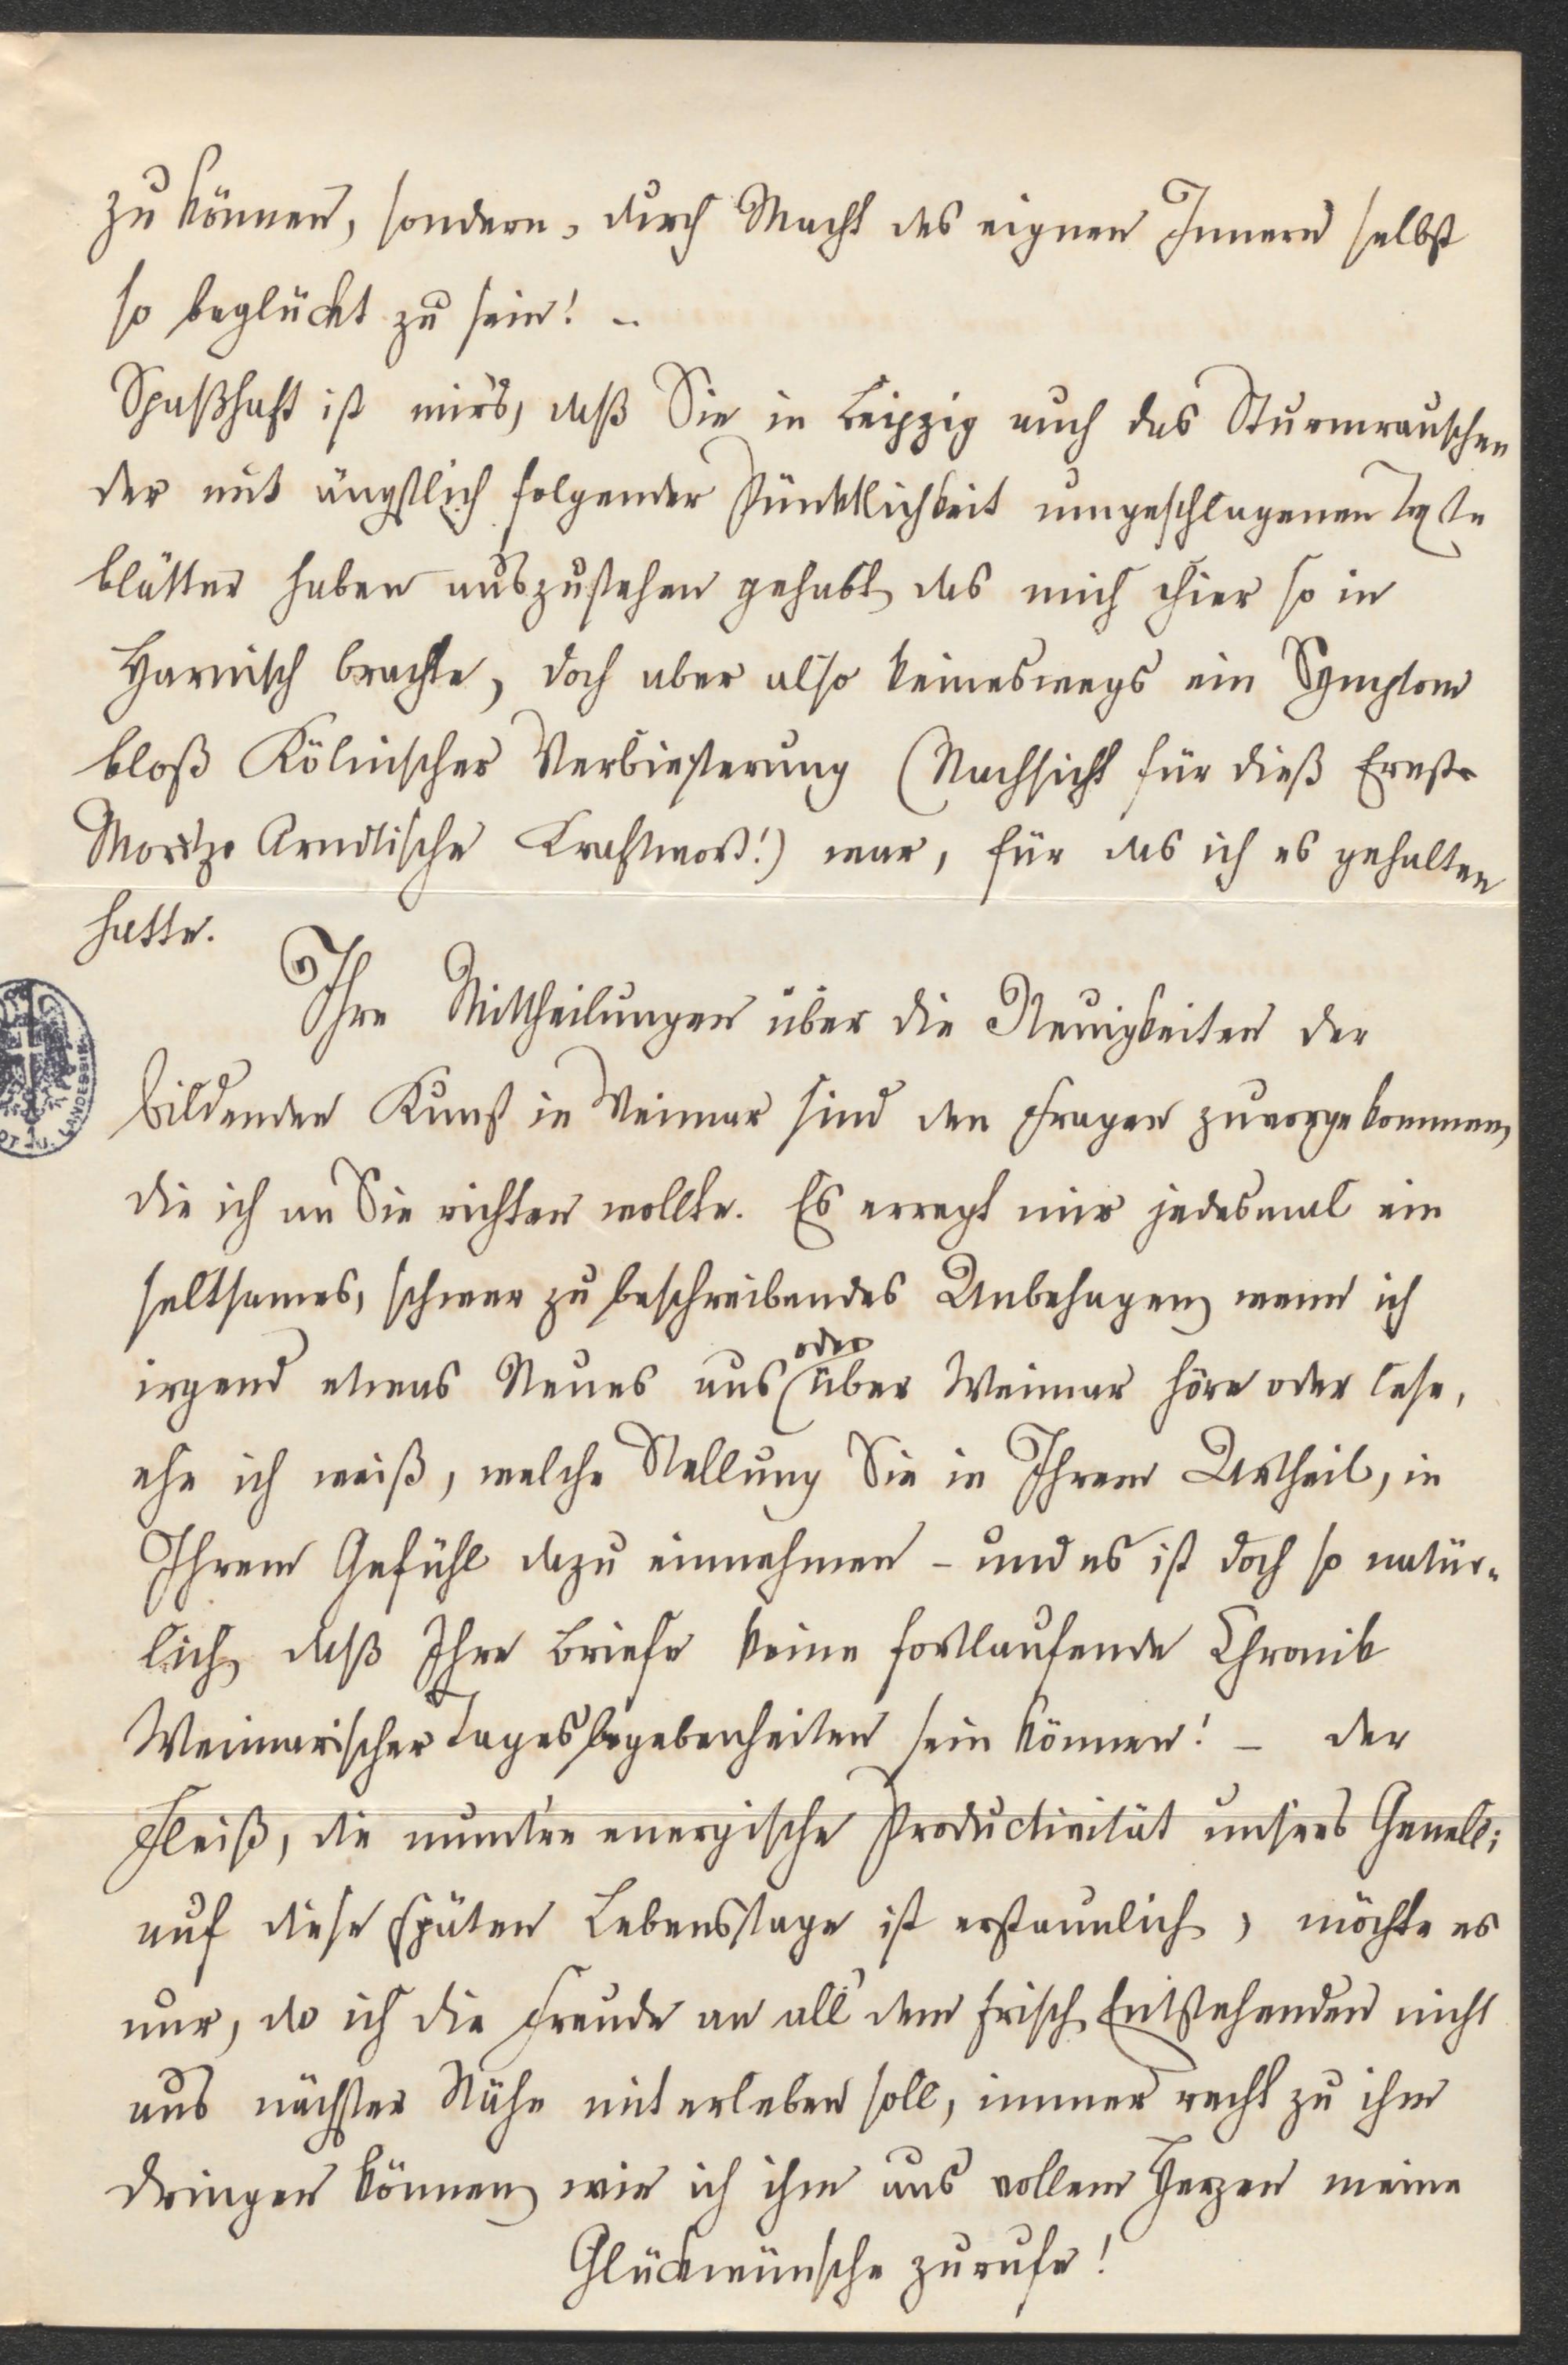 zu können, sondern, durch Macht des eignen Innern selbst
so beglückt zu sein! –
Spaßhaft ist mir's, daß Sie in Leipzig auch das Sturmrauschen
der mit ängstlich folgender Pünktlichkeit umgeschlagenen Texte
blätter haben auszustehen gehabt, das mich hier so in
Harnisch brachte, doch aber also keineswegs ein Symptom
bloß Kölnischer Verbiesterung (Nachsicht für dieß Ernst-
Moritz-Arndtische Kraftwort!) war, für das ich es gehalten
hatte.
Ihre Mittheilungen über die Neuigkeiten der
bildenden Kunst in Weimar sind den Fragen zuvorgekommen,
die ich an Sie richten wollte. Es erregt mir jedesmal ein
seltsames, schwer zu beschreibendes Unbehagen, wenn ich
oder
irgend etwas Neues aus über Weimar höre oder lese,
ehe ich weiß, welche Stellung Sie in Ihrem Urtheil, in
Ihrem Gefühl dazu einnehmen – und es ist doch so natür-
lich, daß Ihre Briefe keine fortlaufende Chronik
Weimarischer Tagesbegebenheiten sein können! – Der
Fleiß, die muntre energische Productivität unsres Genelli
auf diese späten Lebenstage ist erstaunlich, möchte es
nur, da ich die Freude an all' dem frisch Entstehenden nicht
aus nächster Nähe mit erleben soll, immer recht zu ihm
dringen können, wie ich ihm aus vollem Herzen meine
Glückwünsche zurufe!
LANDESBIB